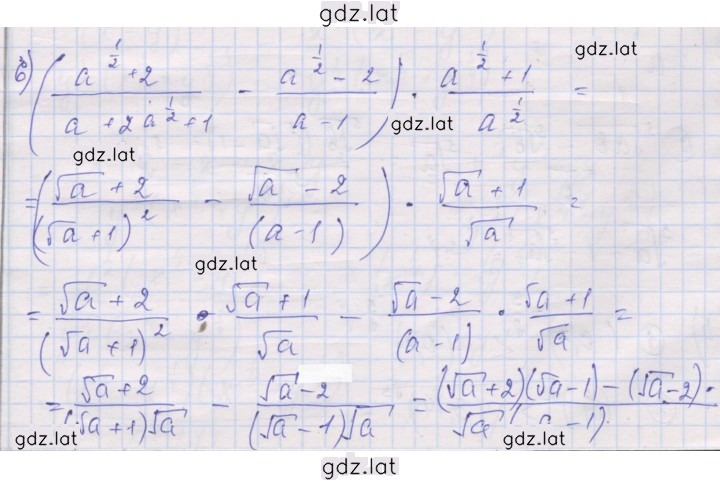 gdz.lat
б) ( (a^{1/2} + 2)/(a + 2a^{1/2} + 1) - (a^{1/2} - 2)/(a - 1) ) · (a^{1/2} + 1)/a^{1/2} =
gdz.lat
gdz.lat
gdz.lat
= ( (√a + 2)/(√a + 1)^2 - (√a - 2)/(a - 1) ) · (√a + 1)/√a =
gdz.lat
= (√a + 2)/(√a + 1)^2 · (√a + 1)/√a - (√a - 2)/(a - 1) · (√a + 1)/√a =
= (√a + 2)/((√a + 1)√a) - (√a - 2)/((√a - 1)√a) = ((√a + 2)(√a - 1) - (√a - 2)·)/(√a (a - 1))
gdz.lat
gdz.lat
gdz.lat